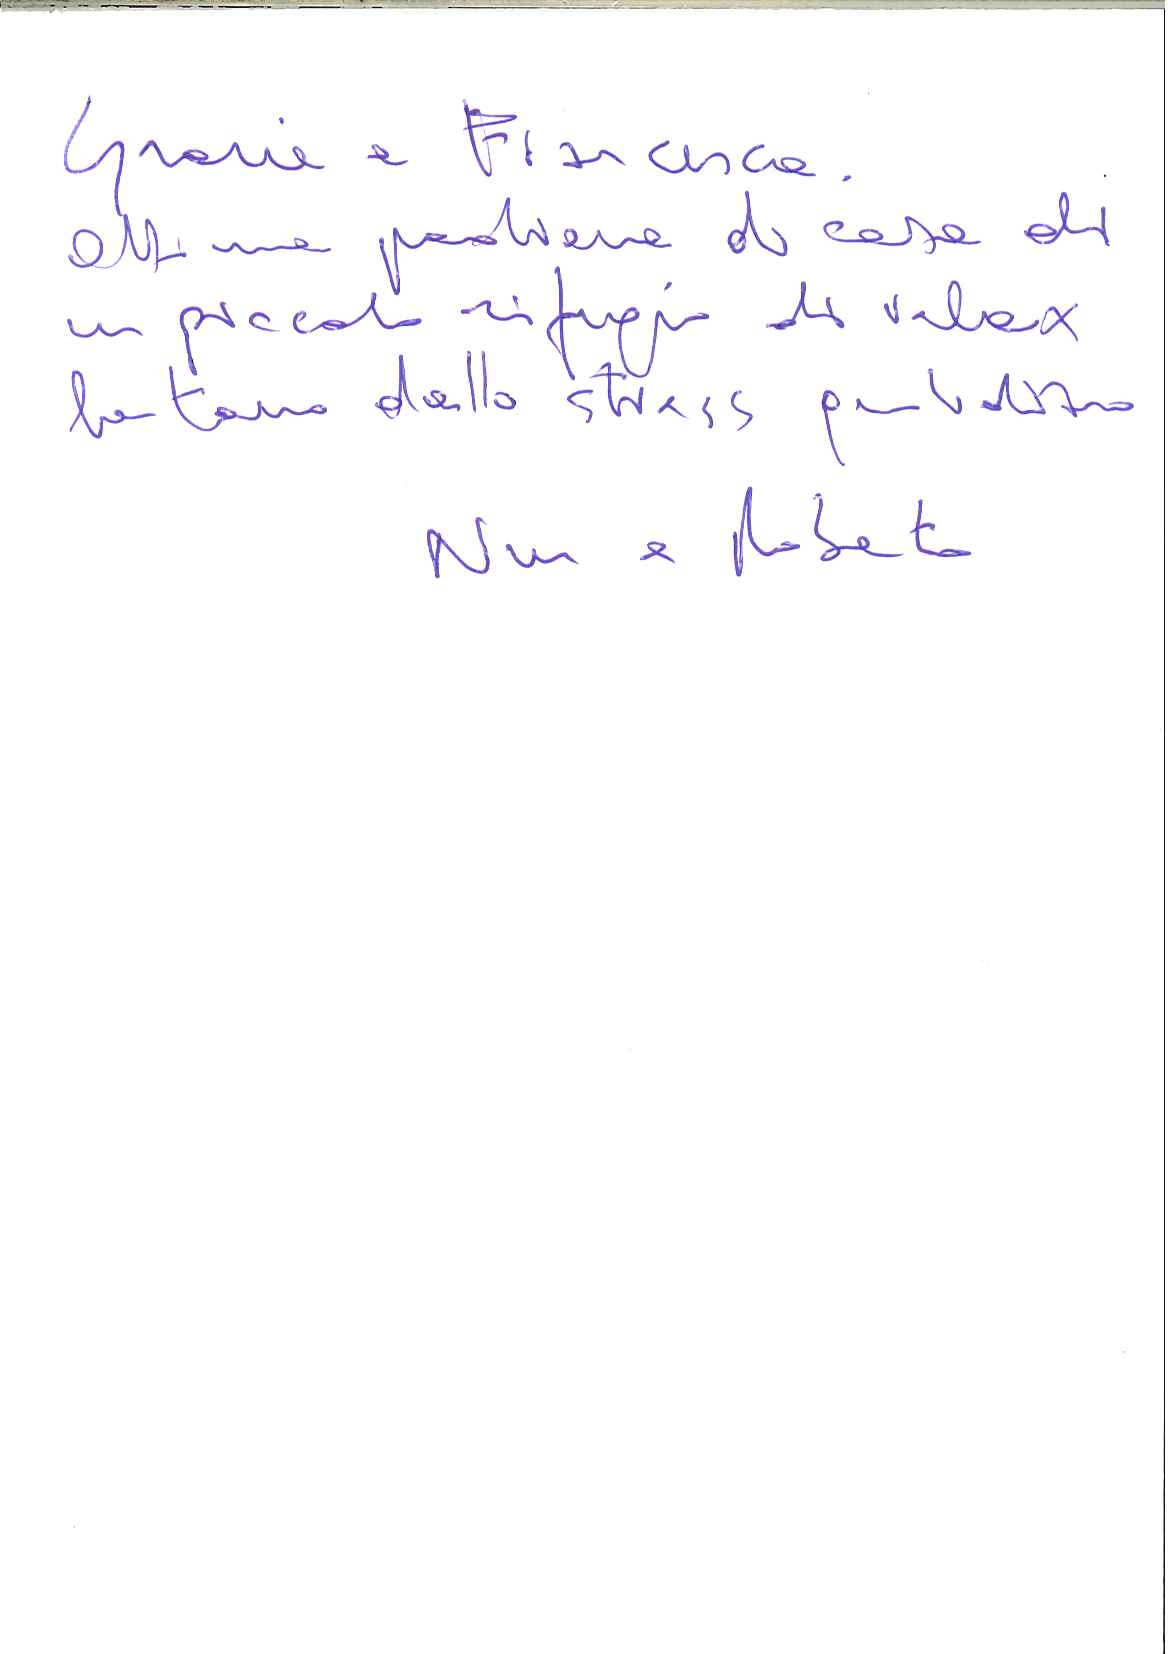 Grazie a Francesca.
Ottima padrona di casa di
un piccolo rifugio di relax
lontano dallo stress quotidiano
e Roberto